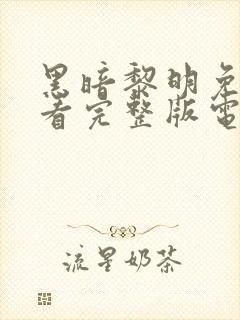 黑暗黎明免
看完整版電
流星奶茶